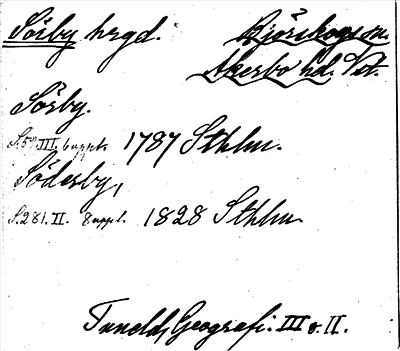 Sörby hrgd. Björskogs sn.
Åkerbo hd. Vst.
Sörby.
III. 6 uppl. 1787 Sthlm.
Söderby,
S. 281. II. 8 uppl. 1828 Sthlm.
Tunelds Geografi. III o. II.